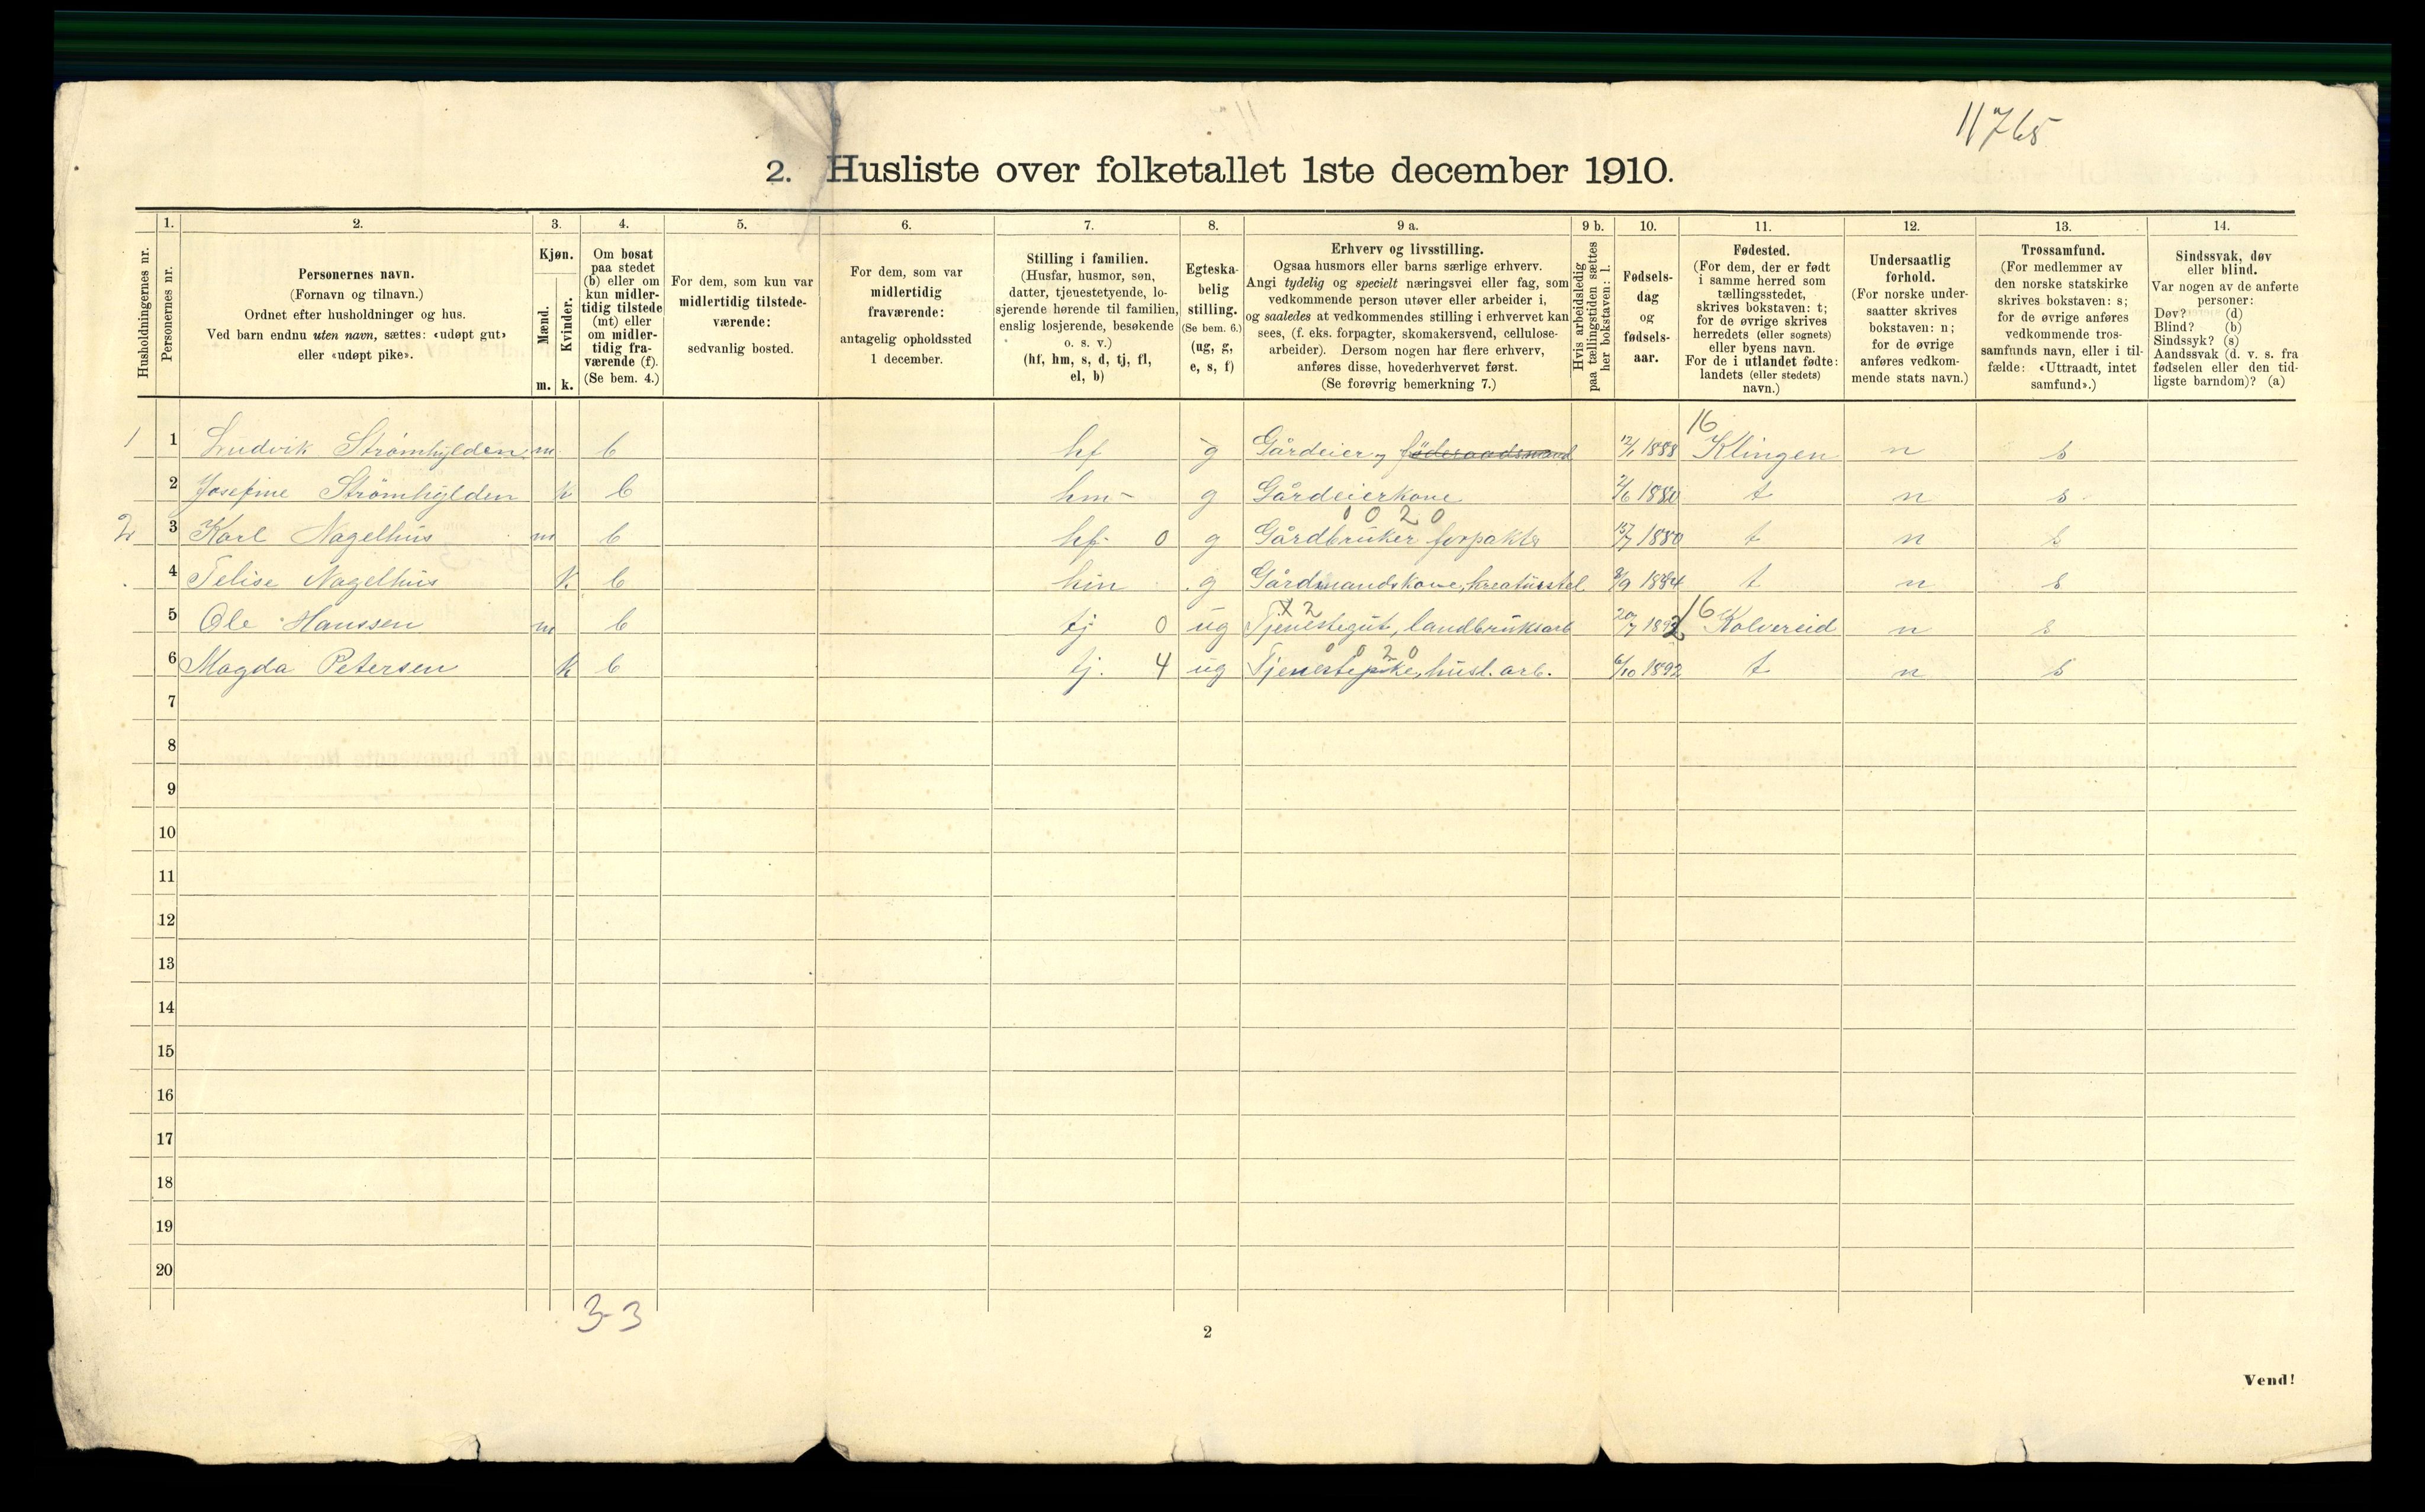 11765
2. Husliste over folketallet 1ste december 1910.
Husholdningernes nr.
1.
Personernes nr.
2.
Personernes navn.
(Fornavn og tilnavn.)
Ordnet efter husholdninger og hus.
Ved barn endnu uten navn, sættes: «udøpt gut»
eller «udøpt pike».
3.
Kjøn.
Mænd.
Kvinder.
m. k.
4.
Om bosat
paa stedet
(b) eller om
kun midler-
tidig tilstede
(mt) eller
om midler-
tidig fra-
værende (f).
(Se bem. 4.)
5.
For dem, som kun var
midlertidig tilstede-
værende:
sedvanlig bosted.
6.
For dem, som var
midlertidig
fraværende:
antagelig opholdssted
1 december.
7.
Stilling i familien.
(Husfar, husmor, søn,
datter, tjenestetyende, lo-
sjerende hørende til familien,
enslig losjerende, besøkende
o. s. v.)
(hf, hm, s, d, tj, fl,
el, b)
8.
Egteska-
belig
stilling.
(Se bem. 6.)
(ug, g,
e, s, f)
9 a.
Erhverv og livsstilling.
Ogsaa husmors eller barns særlige erhverv.
Angi tydelig og specielt næringsvei eller fag, som
vedkommende person utøver eller arbeider i,
og saaledes at vedkommendes stilling i erhvervet kan
sees, (f. eks. forpagter, skomakersvend, cellulose-
arbeider). Dersom nogen har flere erhverv,
anføres disse, hovederhvervet først.
(Se forøvrig bemerkning 7.)
9 b.
Hvis arbeidsledig
paa tællingstiden sættes
her bokstaven: l.
10.
Fødsels-
dag
og
fødsels-
aar.
11.
Fødested.
(For dem, der er født
i samme herred som
tællingsstedet,
skrives bokstaven: t;
for de øvrige skrives
herredets (eller sognets)
eller byens navn.
For de i utlandet fødte:
landets (eller stedets)
navn.)
12.
Undersaatlig
forhold.
(For norske under-
saatter skrives
bokstaven: n;
for de øvrige
anføres vedkom-
mende stats navn.)
13.
Trossamfund.
(For medlemmer av
den norske statskirke
skrives bokstaven: s;
for de øvrige anføres
vedkommende tros-
samfunds navn, eller i til-
fælde: «Uttraadt, intet
samfund».)
14.
Sindssvak, døv
eller blind.
Var nogen av de anførte
personer:
Døv? (d)
Blind? (b)
Sindssyk? (s)
Aandssvak (d. v. s. fra
fødselen eller den tid-
ligste barndom)? (a)
16
1 1 Ludvik Strømhylden m b hf g Gårdeier, föderaadsmand 12/1 1888 Klingen n s
2 Josefine Strømhylden k b hm g Gårdeierkone 2/6 1880 t n s
0 0 2 0
2 3 Karl Nagelhus m b hf 0 g Gårdbruker forpakter 15/7 1880 t n s
4 Telise Nagelhus k b hm g Gårdmandskone, kreaturstel 8/9 1884 t n s
X 2 16
5 Ole Hanssen m b tj 0 ug Tjenestegut, landbruksarb 20/7 1892 Kolvereid n s
0 0 2 0
6 Magda Petersen k b tj. 4 ug Tjenestepike, husl. arb. 6/10 1892 t n s
7
8
9
10
11
12
13
14
15
16
17
18
19
20
3-3
2
Vend!